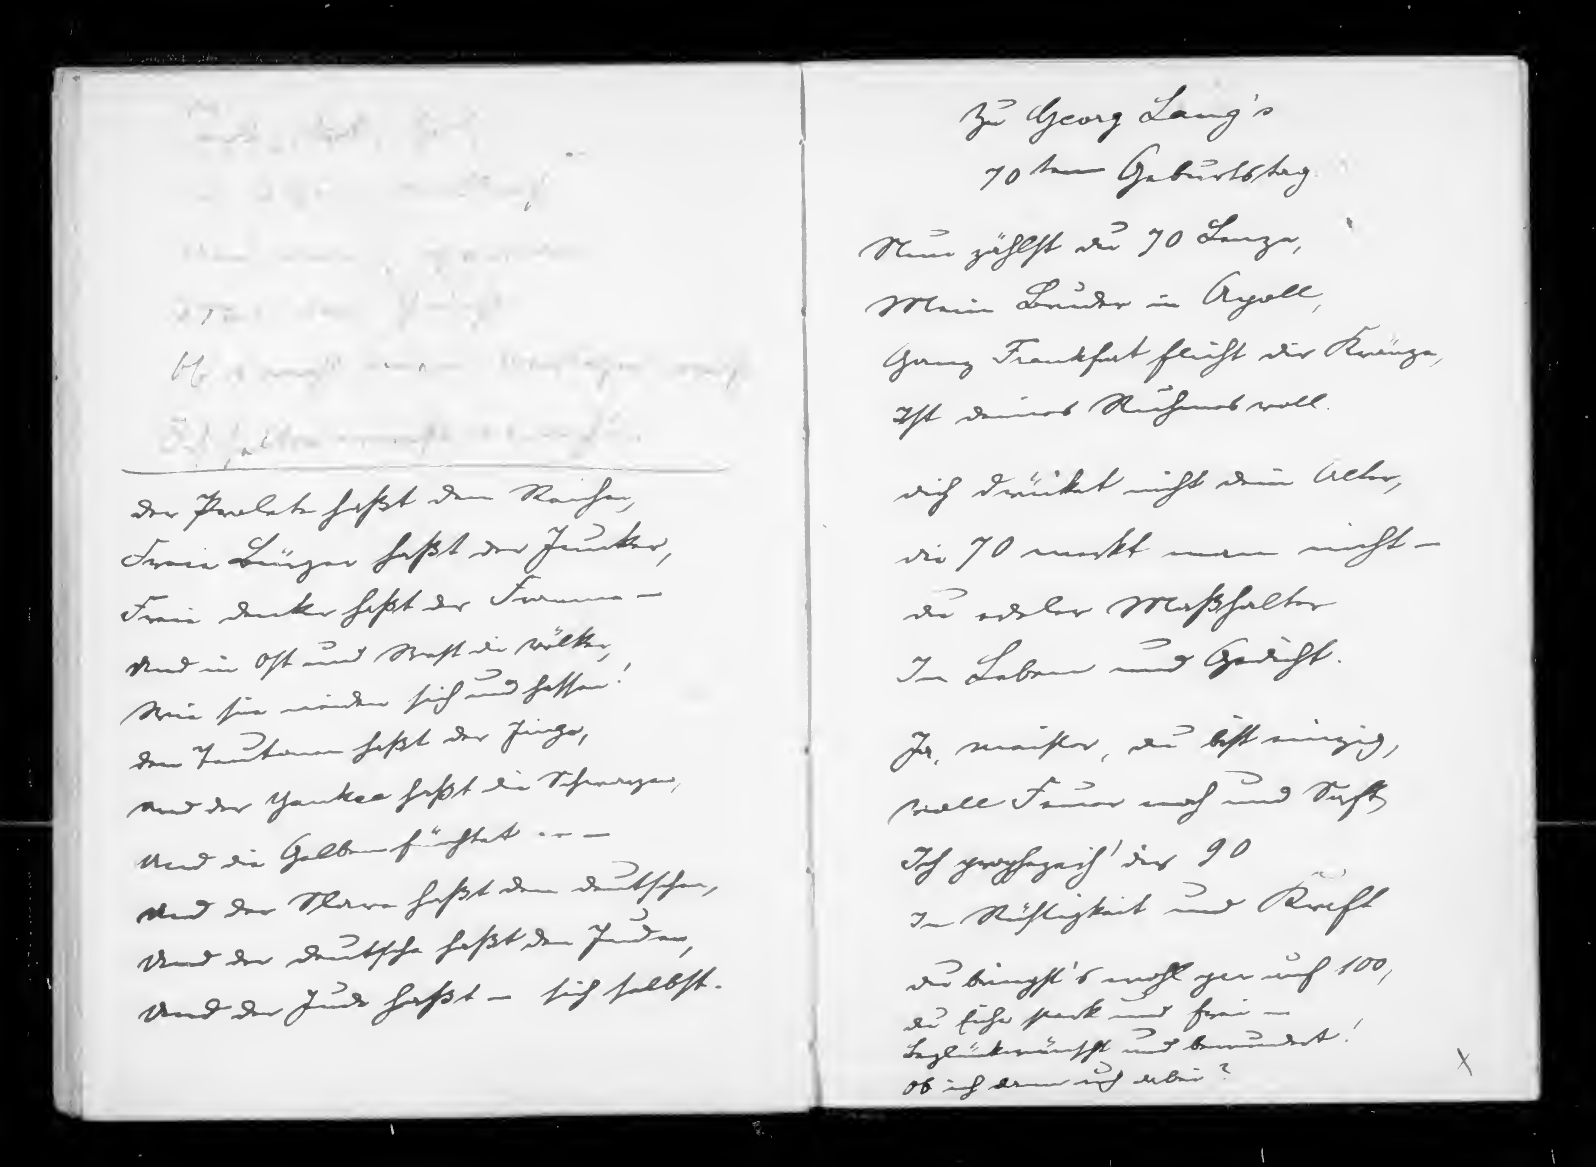 Der Prolete haßt den Reichen,
Freie Bürger haßt der Junker,
Freie Denker haßt der Fromme –
Und in Ost und West die Völker,
Wie sie neiden sich und hassen!
Den Teutonen haßt der Jingo,
Und der Yankee haßt die Schwarzen,
Und die Gelben fürchtet ... –
Und der Slave haßt den Deutschen,
Und der Deutsche haßt den Juden,
Und der Jude haßt – sich selbst.
Zu Georg Lang's
70ten Geburtstag
Nun zählst du 70 Lenze,
Mein Bruder in Apoll,
Ganz Frankfurt flicht dir Kränze,
Ist deines Ruhmes voll.
Dich drücket nicht dein Alter,
Die 70 merkt man nicht –
Du edeler Maßhalter
In Leben und Gedicht.
Ja, Meister, du bist einzig,
Voll Feuer noch und Saft,
Ich prophezeih' dir 90
In Rüstigkeit und Kraft
Du bringst's wohl gar auf 100,
Du Eiche stark und frei –
Beglückwünscht und bewundert!
Ob ich dann auch dabei?